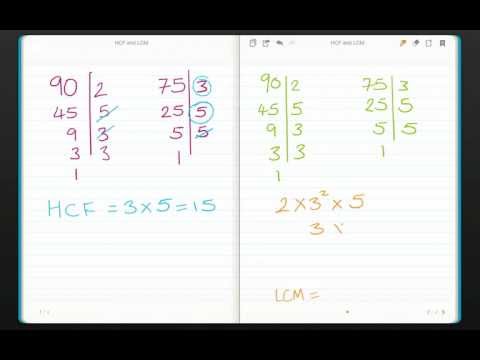 HCF and LCM
90 2 75 3
45 5 25 5
9 3 5 5
3 3 1
1
HCF = 3 × 5 = 15
1 / 2
HCF and LCM
90 2 75 3
45 5 25 5
9 3 5 5
3 3 1
1
2 × 3² × 5
3
LCM =